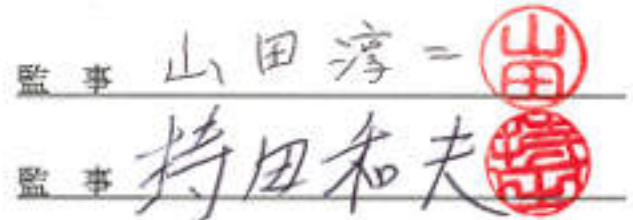 監事 山田淳二 山田
監事 持田和夫